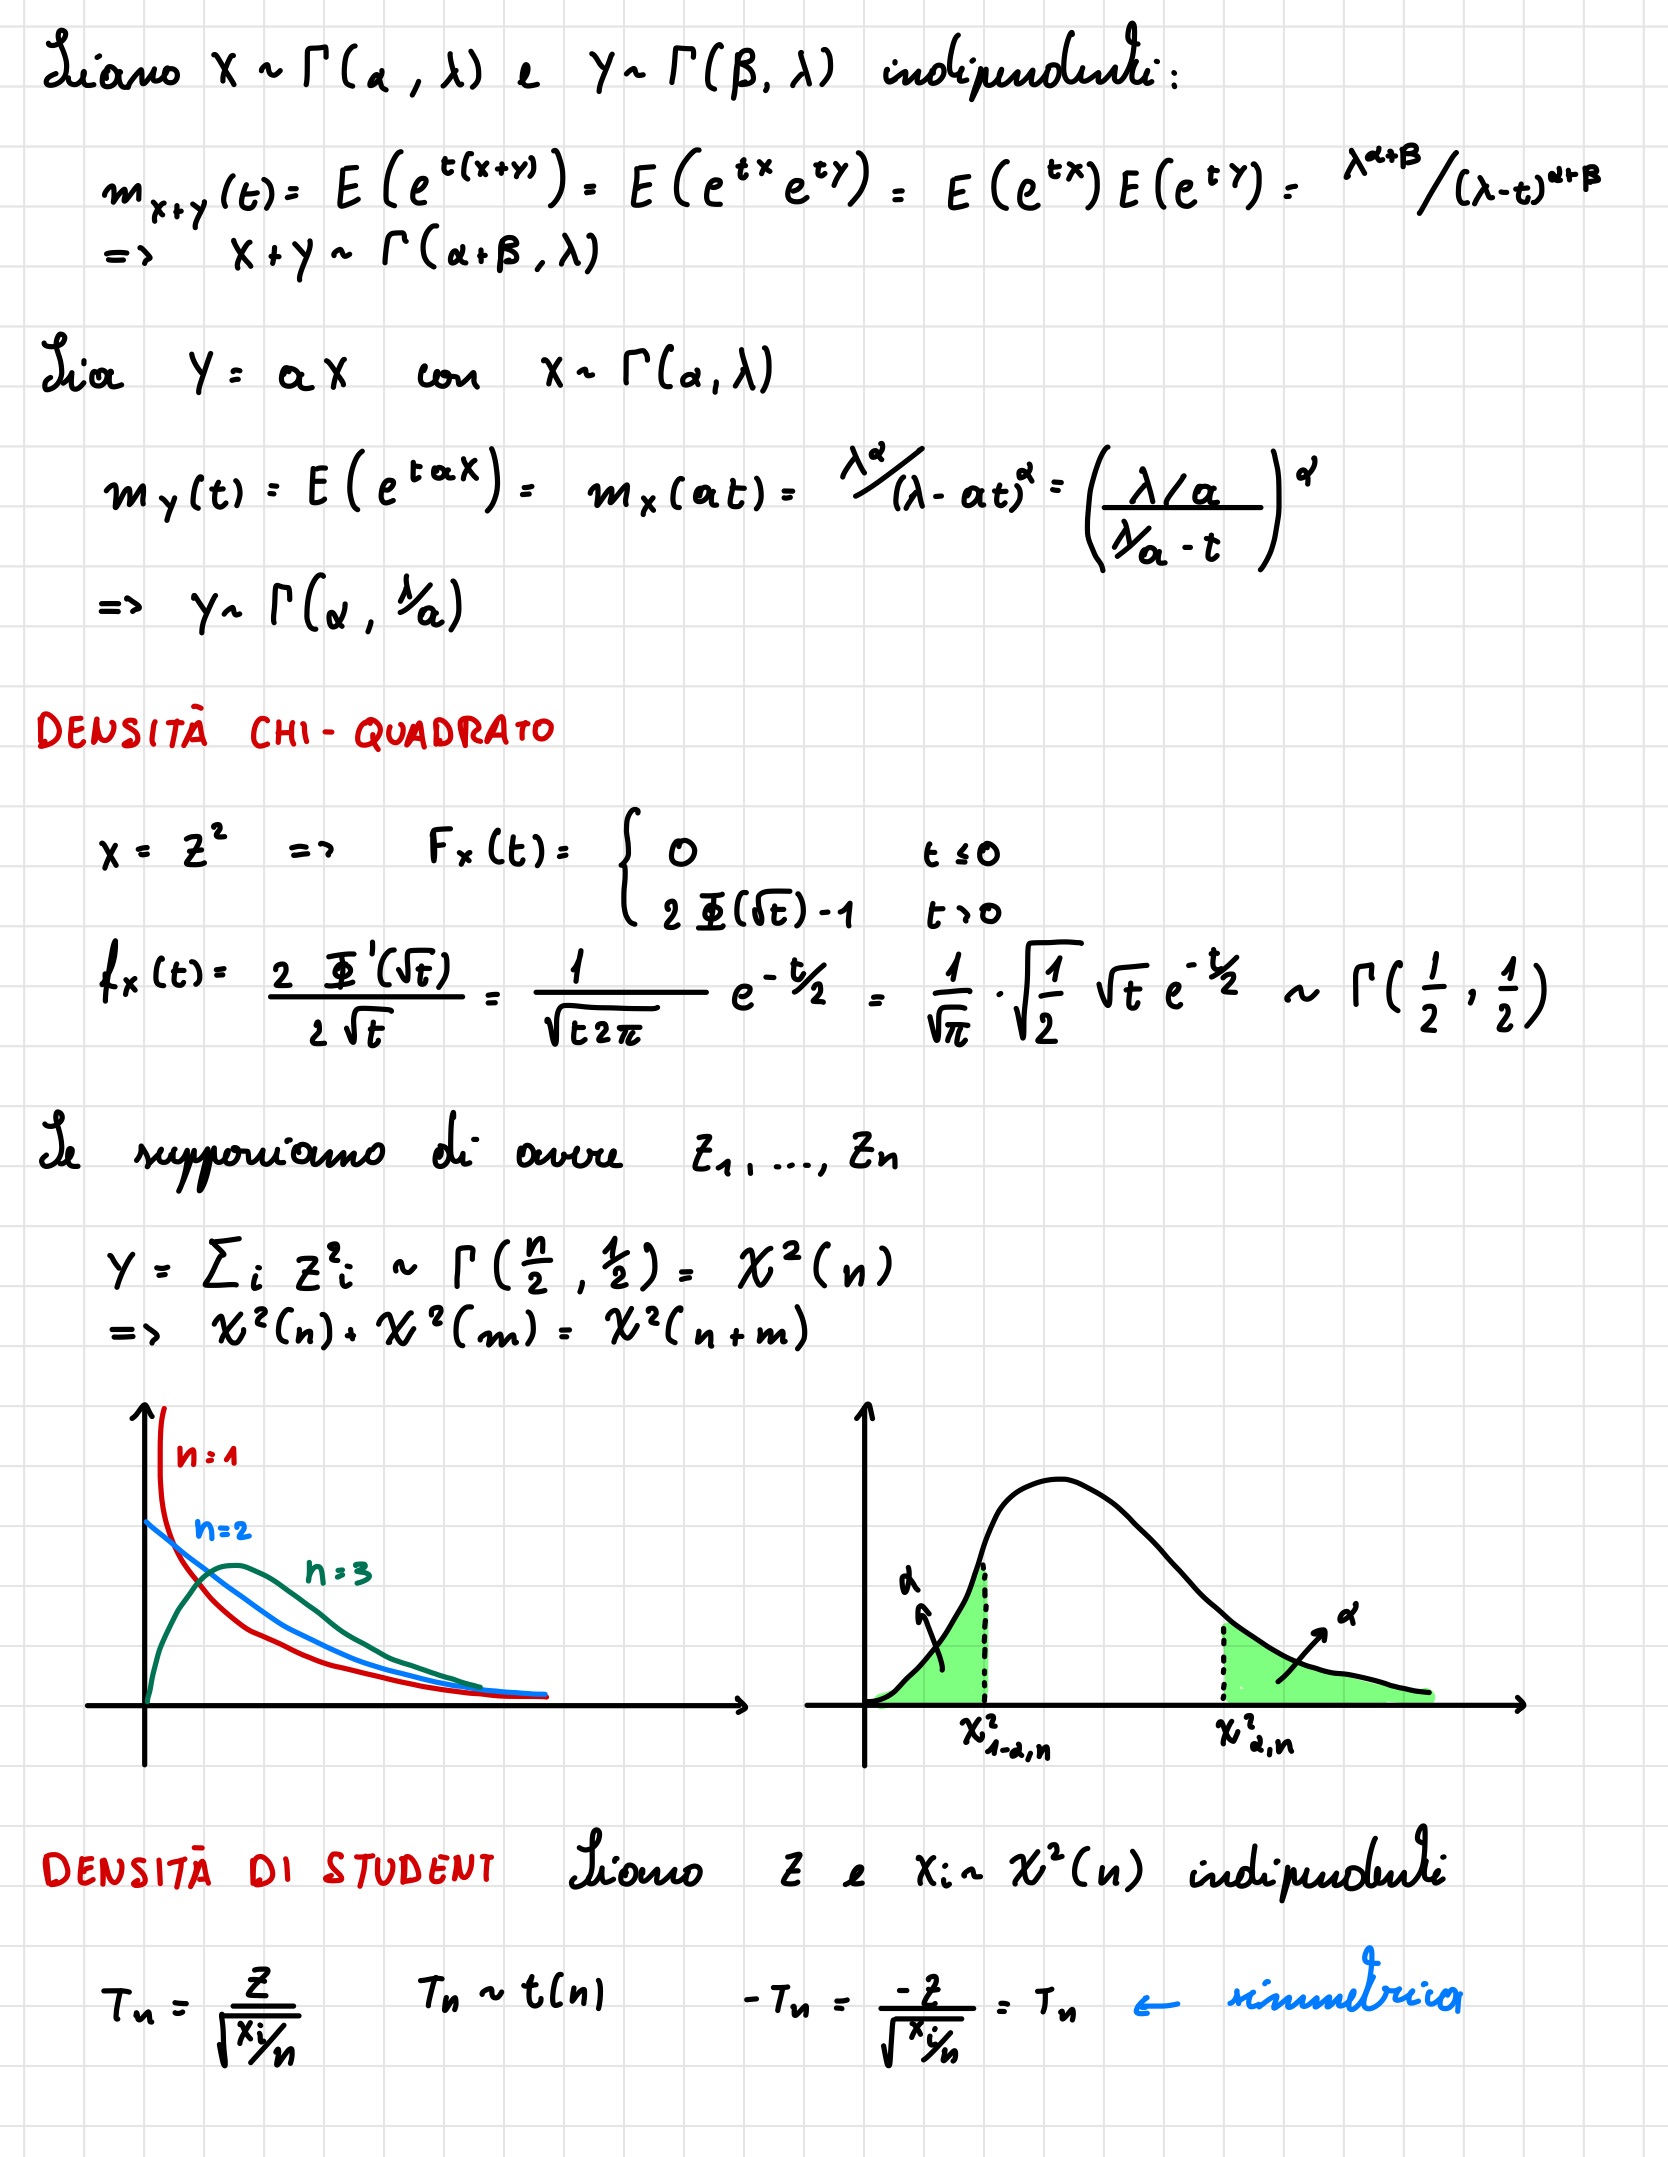 Siano X ~ Γ(α, λ) e Y ~ Γ(β, λ) indipendenti:
m_{X+Y}(t) = E(e^{t(X+Y)}) = E(e^{tX} e^{tY}) = E(e^{tX}) E(e^{tY}) = λ^{α+β}/(λ-t)^{α+β}
=> X+Y ~ Γ(α+β, λ)
Sia Y = aX con X ~ Γ(α, λ)
m_Y(t) = E(e^{taX}) = m_X(at) = λ^α/(λ-at)^α = ((λ/a)/(λ/a - t))^α
=> Y ~ Γ(α, λ/a)
DENSITÀ CHI-QUADRATO
X = Z² => F_X(t) = { 0 t ≤ 0
2Φ(√t) - 1 t > 0
f_X(t) = 2 Φ'(√t) / 2√t = 1/√(t2π) e^{-t/2} = 1/√π · √(1/2) √t e^{-t/2} ~ Γ(1/2, 1/2)
Se supponiamo di avere Z₁, ..., Zn
Y = Σ_i Z²_i ~ Γ(n/2, 1/2) = χ²(n)
=> χ²(n) + χ²(m) = χ²(n+m)
n=1
n=2
n=3
α
α
χ²_{1-α,n}
χ²_{α,n}
DENSITÀ DI STUDENT Siano Z e X_i ~ χ²(n) indipendenti
T_n = Z/√(X_i/n) T_n ~ t(n) -T_n = -Z/√(X_i/n) = T_n ← simmetrica